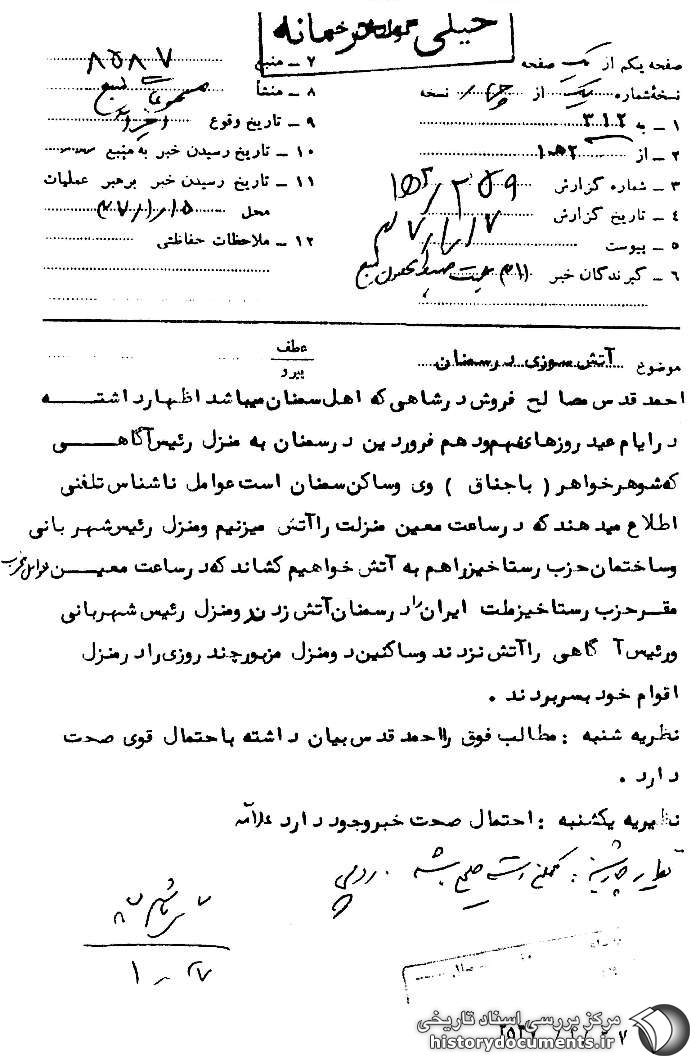 خیلی محرمانه
صفحه یکم از یک صفحه
نسخهٔ شماره یک از نسخه
۱ ـ به ۳۱۲
۲ ـ از
۳ ـ شماره گزارش
۴ ـ تاریخ گزارش ۳۷/۱/۱۷
۵ ـ پیوست
۶ ـ گیرندگان خبر
۷ ـ منبع ۸۵۸۷
۸ ـ منشأ مسموعات منبع
۹ ـ تاریخ وقوع اخیراً
۱۰ ـ تاریخ رسیدن خبر به منبع
۱۱ ـ تاریخ رسیدن خبر برهبر عملیات
محل ۳۷/۱/۱۵
۱۲ ـ ملاحظات حفاظتی
موضوع آتش سوزی در سمنان
عطف
پیرو
احمد قدس مصالح فروش در شاهی که اهل سمنان میباشد اظهار داشته
در ایام عید روزهای نهم و دهم فروردین در سمنان به منزل رئیس آگاهی
که شوهر خواهر ( باجناق ) وی و ساکن سمنان است عوامل ناشناس تلفنی
اطلاع میدهند که در ساعت معین منزلت را آتش میزنیم و منزل رئیس شهربانی
و ساختمان حزب رستاخیز را هم به آتش خواهیم کشاند که در ساعت معین عوامل مخرب
مقر حزب رستاخیز ملت ایران را در سمنان آتش زدند و منزل رئیس شهربانی
و رئیس آگاهی را آتش نزدند و ساکنین دو منزل مزبور چند روزی را در منزل
اقوام خود بسر بردند .
نظریه شنبه : مطالب فوق را احمد قدس بیان داشته با احتمال قوی صحت
دارد .
نظریه یکشنبه : احتمال صحت خبر وجود دارد علامه
مرکز بررسی اسناد تاریخی
historydocuments.ir